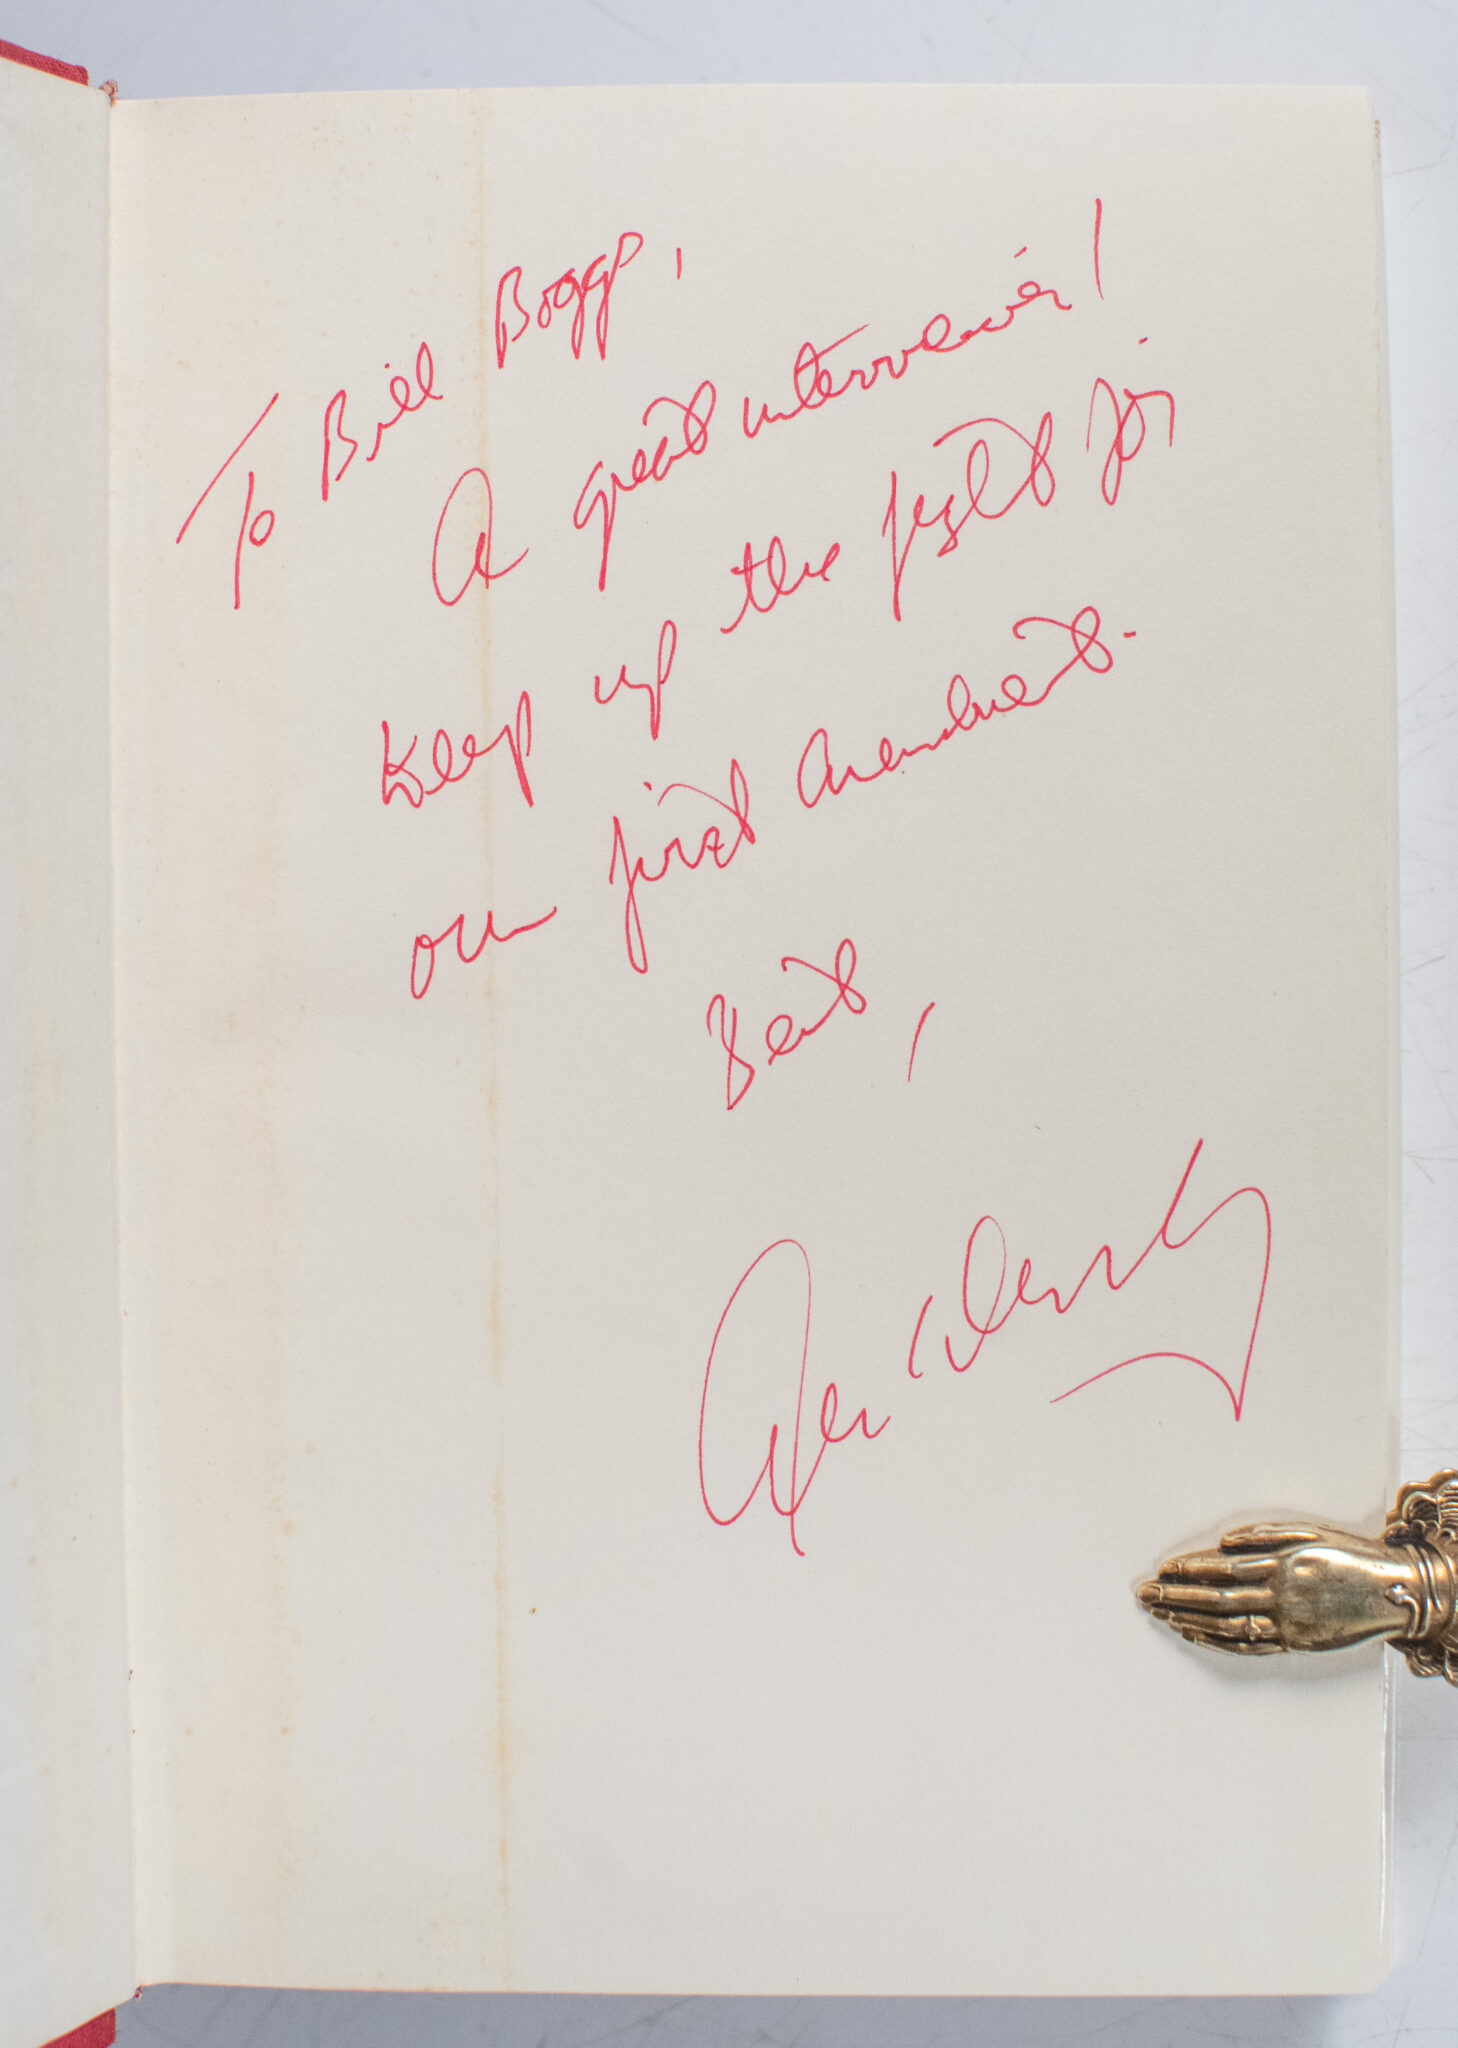 To Bill Boggs,
A great interviewer!
Keep up the fight for
our first Amendment.
Best,
Alan Dersh